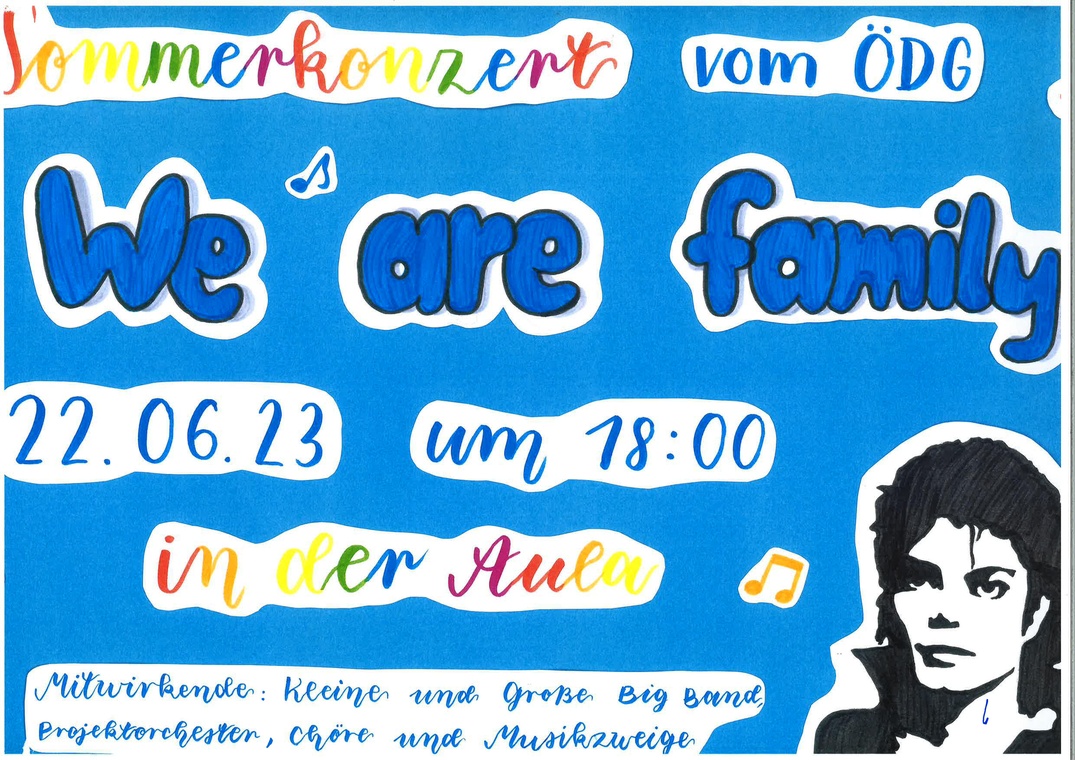 Sommerkonzert vom ÖDG
We are family
22.06.23 um 18:00
in der Aula
Mitwirkende: Kleine und Große Big Band,
Projektorchester, Chöre und Musikzweige